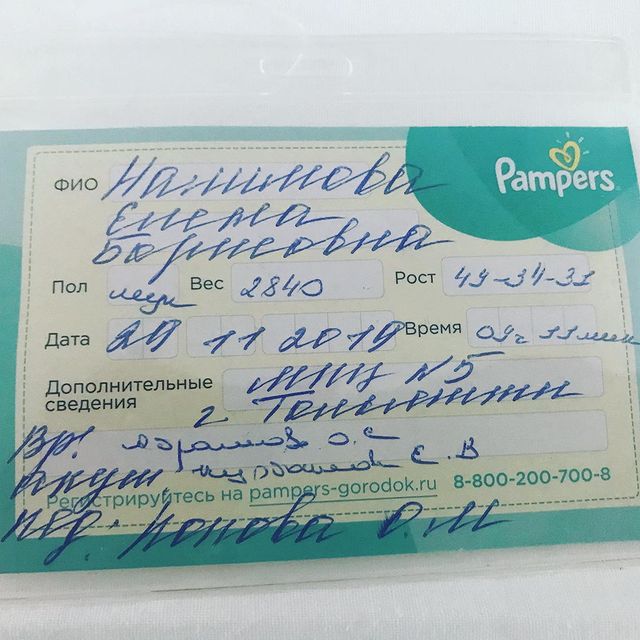 Pampers
ФИО Налимова
Елена
Борисовна
Пол муж Вес 2840 Рост 49-34-33
Дата 29 11 2019 Время 09ч 33мин
Дополнительные МГКЦ №5
сведения г Тольятти
Вр. О.С
Акуш Е.В
Регистрируйтесь на pampers-gorodok.ru 8-800-200-700-8
Попова О.М